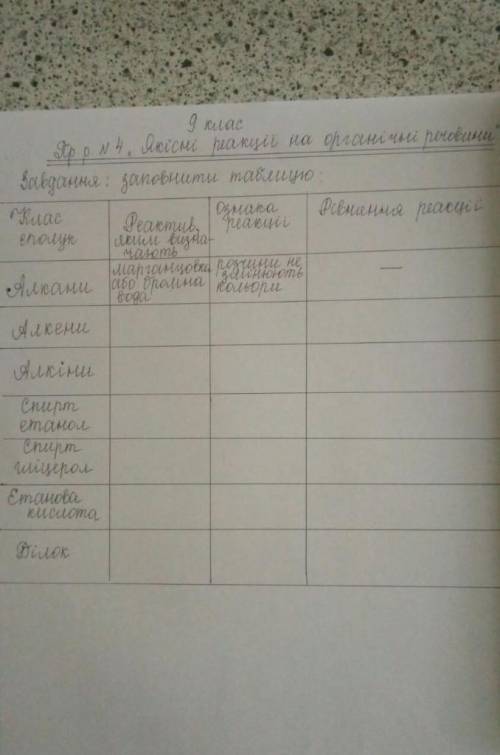 9 клас
Пр. р. №4. Якісні реакції на органічні речовини
Завдання: заповнити таблицю:
Клас сполук
Реактив, яким визна-
чають
Ознака реакції
Рівняння реакцій
Алкани
марганцовка
або бромна
вода
розчини не
змінюють
кольори
—
Алкени
Алкіни
Спирт
етанол
Спирт
гліцерол
Етанова
кислота
Білок